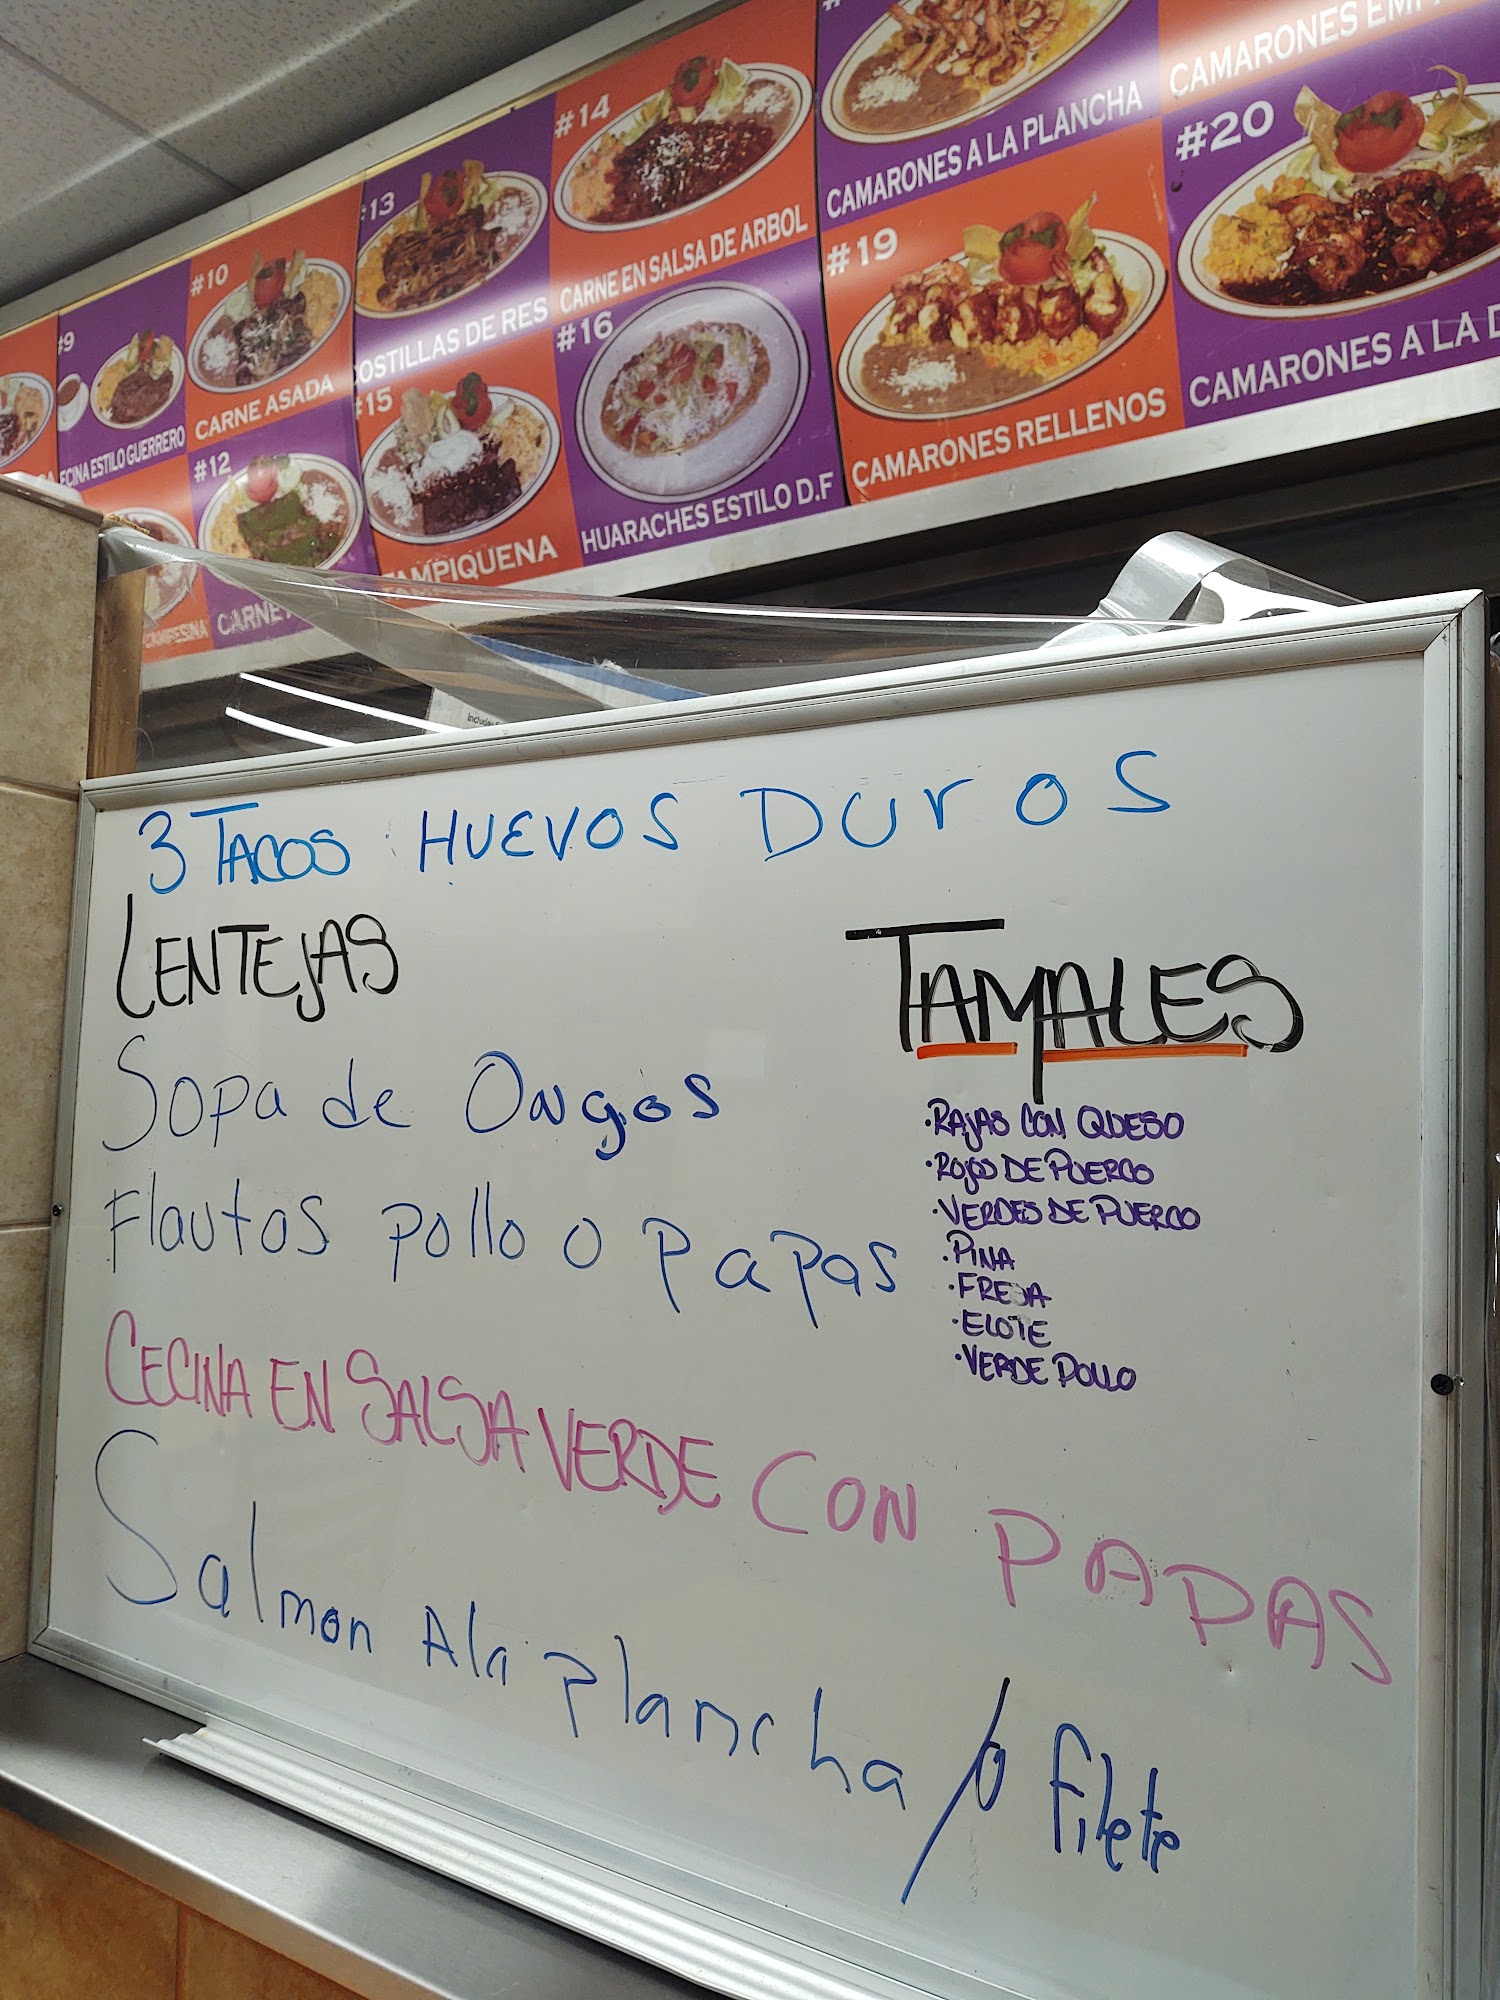 #9
ECINA ESTILO GUERRERO
#10
CARNE ASADA
#12
CARNE
13
OSTILLAS DE RES
#14
CARNE EN SALSA DE ARBOL
#15
TAMPIQUENA
#16
HUARACHES ESTILO D.F
CAMARONES A LA PLANCHA
CAMARONES EMP
#19
CAMARONES RELLENOS
#20
CAMARONES A LA D
3 TACOS HUEVOS DUrOS
LENTEJAS
Sopa de Ongos
Flautas pollo o papas
CECINA EN SALSA VERDE CON PAPAS
Salmon Ala plancha /o filete
TAMALES
·RAJAS CON QUESO
·ROJOS DE PUERCO
·VERDES DE PUERCO
·PINA
·FRESA
·ELOTE
·VERDE POLLO